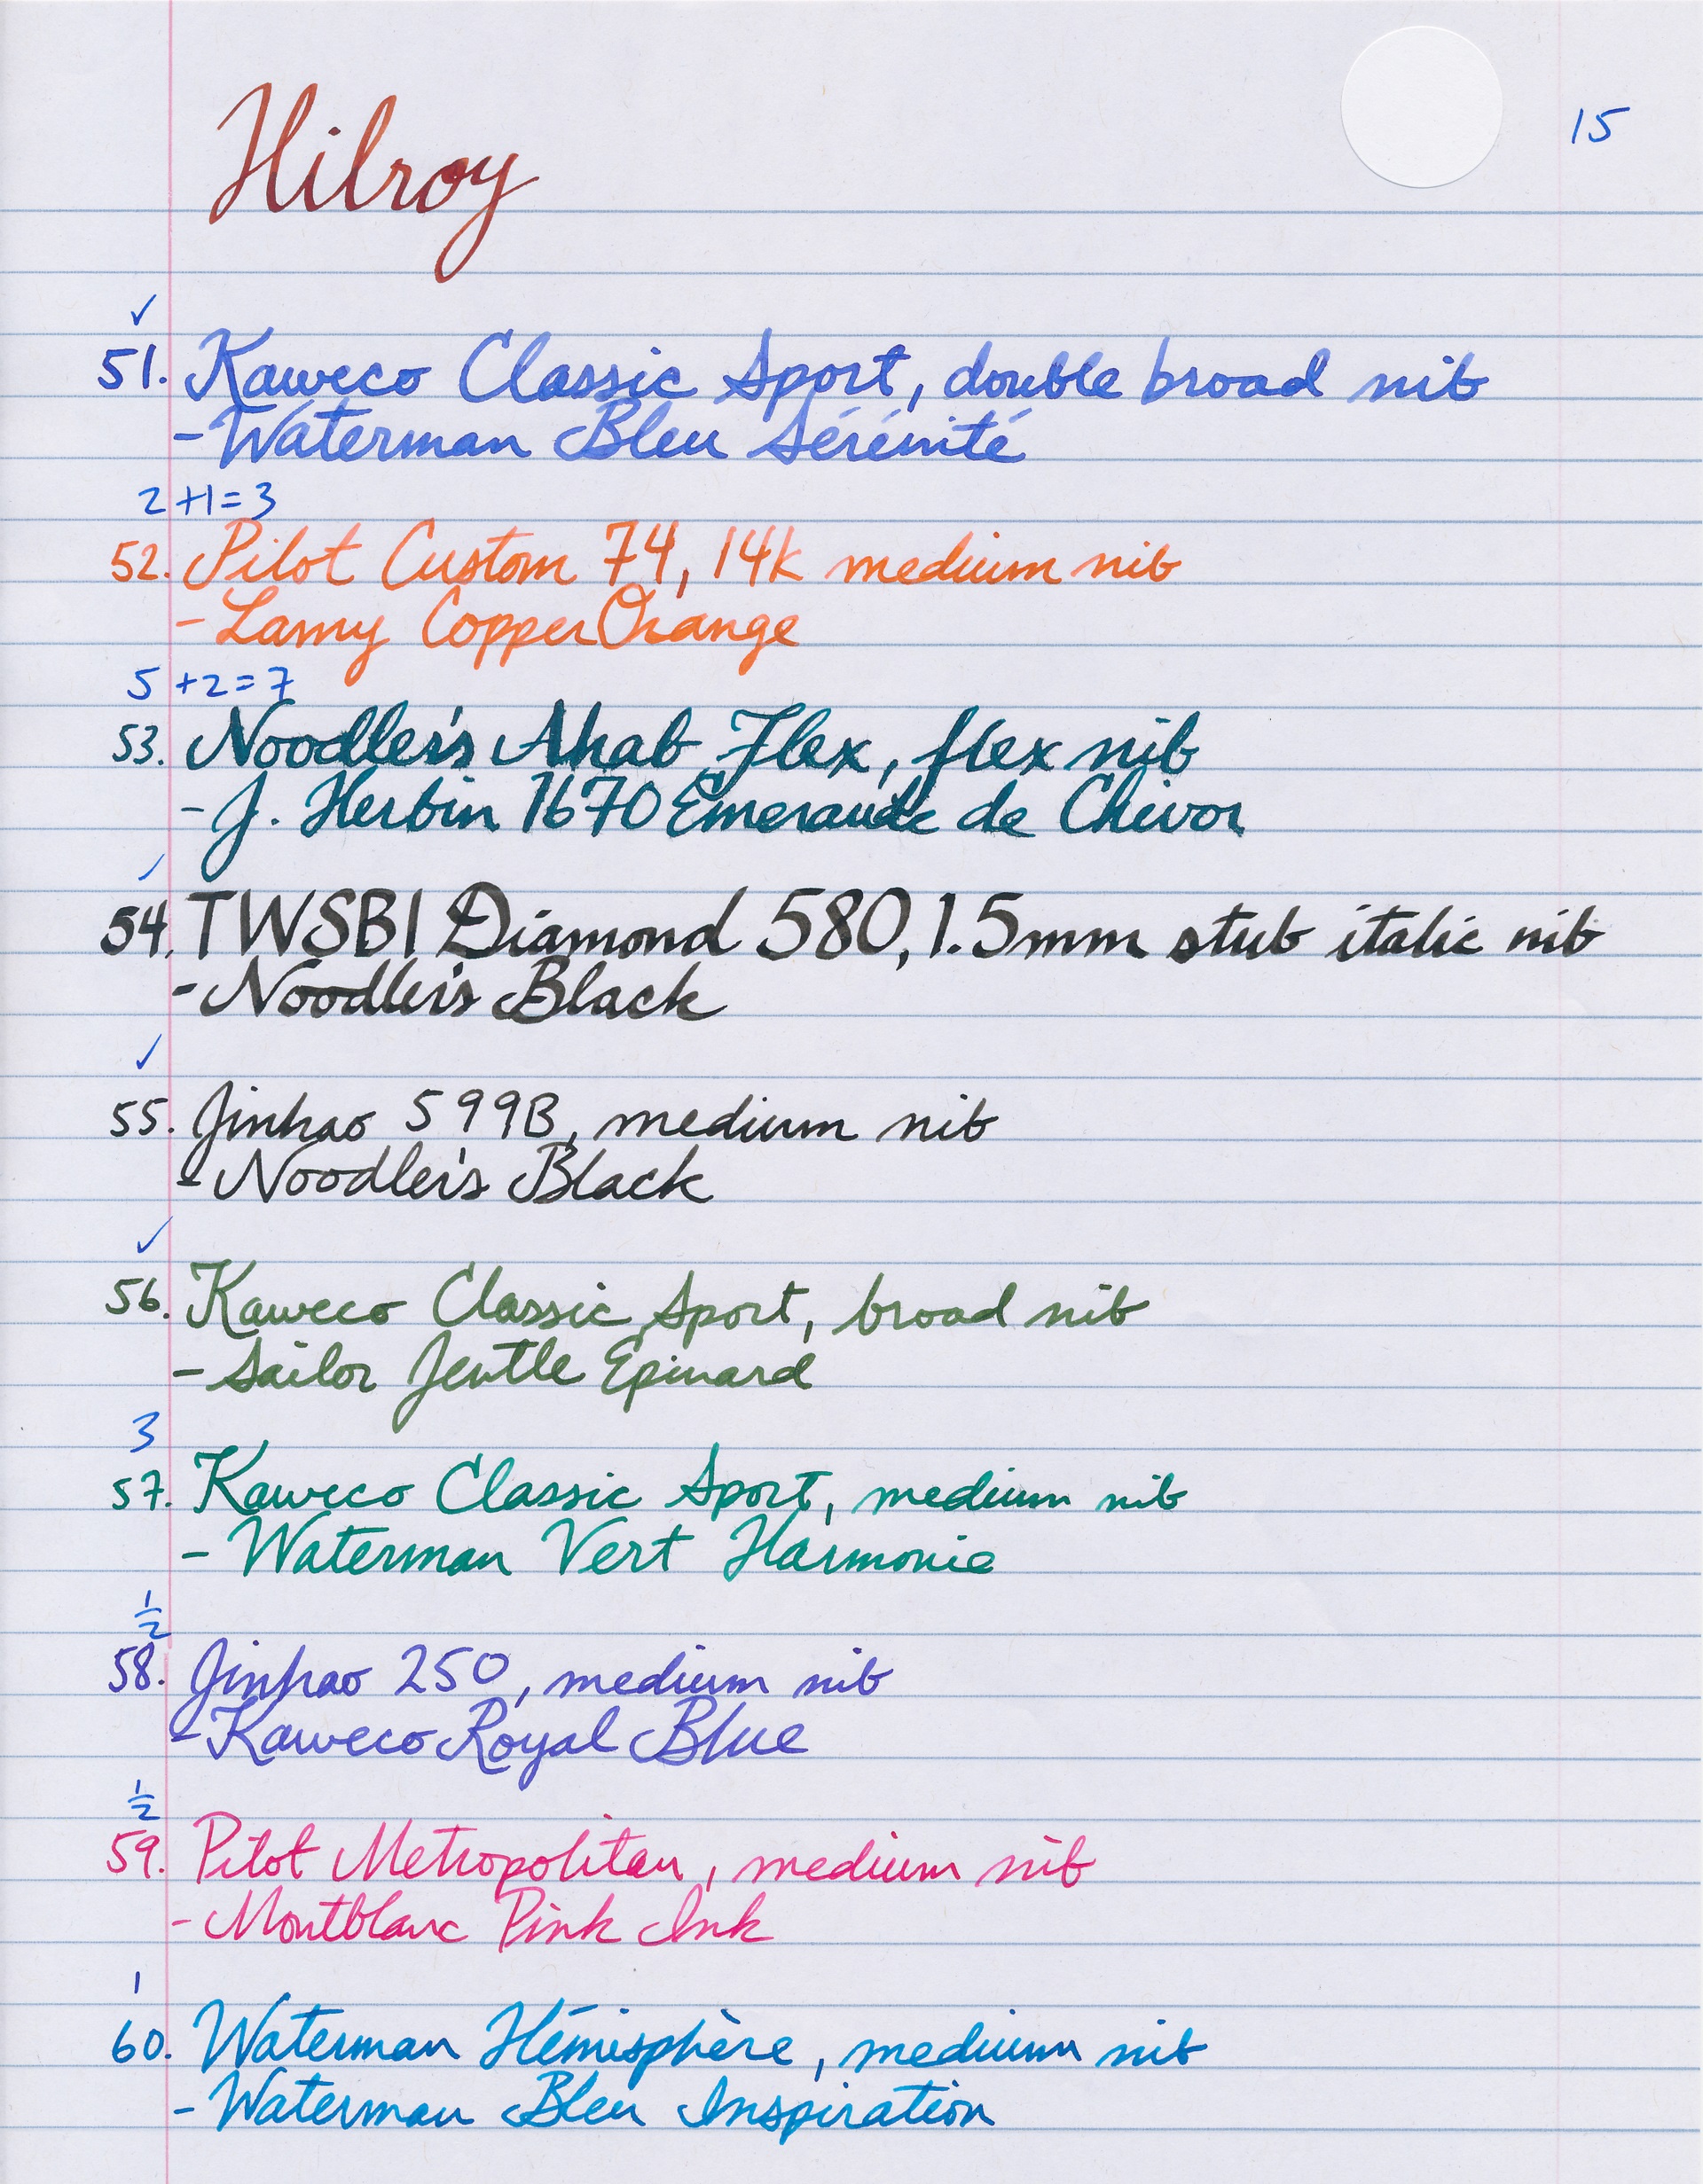 15
Hilroy
✓
51. Kaweco Classic Sport, double broad nib
- Waterman Bleu Sérénité
2 +1=3
52. Pilot Custom 74, 14k medium nib
- Lamy Copper Orange
5 +2=7
53. Noodler's Ahab Flex, flex nib
- J. Herbin 1670 Émeraude de Chivor
✓
54. TWSBI Diamond 580, 1.5mm stub italic nib
- Noodler's Black
✓
55. Jinhao 599B, medium nib
- Noodler's Black
✓
56. Kaweco Classic Sport, broad nib
- Sailor Jentle Epinard
3
57. Kaweco Classic Sport, medium nib
- Waterman Vert Harmonie
1/2
58. Jinhao 250, medium nib
- Kaweco Royal Blue
1/2
59. Pilot Metropolitan, medium nib
- Montblanc Pink Ink
1
60. Waterman Hémisphère, medium nib
- Waterman Bleu Inspiration